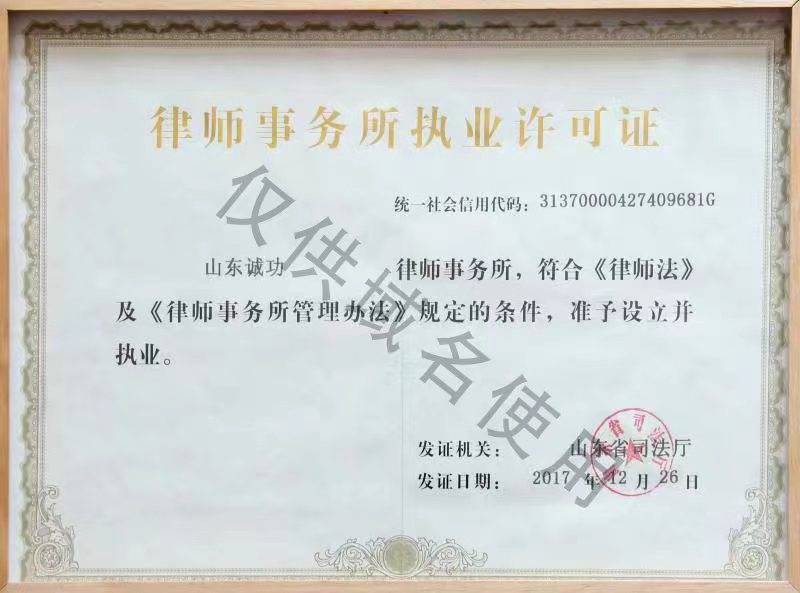 律师事务所执业许可证
统一社会信用代码：31370000427409681G
山东诚功 律师事务所，符合《律师法》
及《律师事务所管理办法》规定的条件，准予设立并
执业。
发证机关：山东省司法厅
发证日期：2017 年 12 月 26 日
山东省司法厅
仅供域名使用